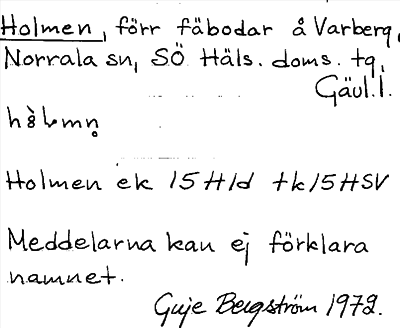 Holmen, förr fäbodar å Varberg,
Norrala sn, SÖ Häls. doms. tg,
Gävl. l.
Holmen ek 15 H1d tk 15 HSV
Meddelarna kan ej förklara
namnet.
Guje Bergström 1972.